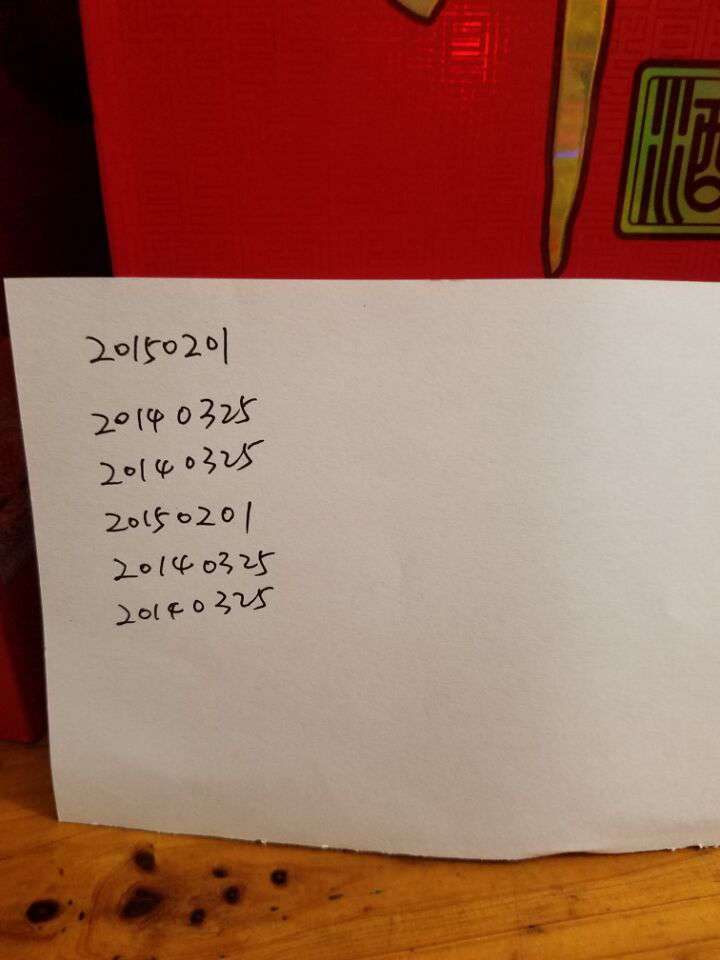 20150201
20140325
20140325
20150201
20140325
20140325